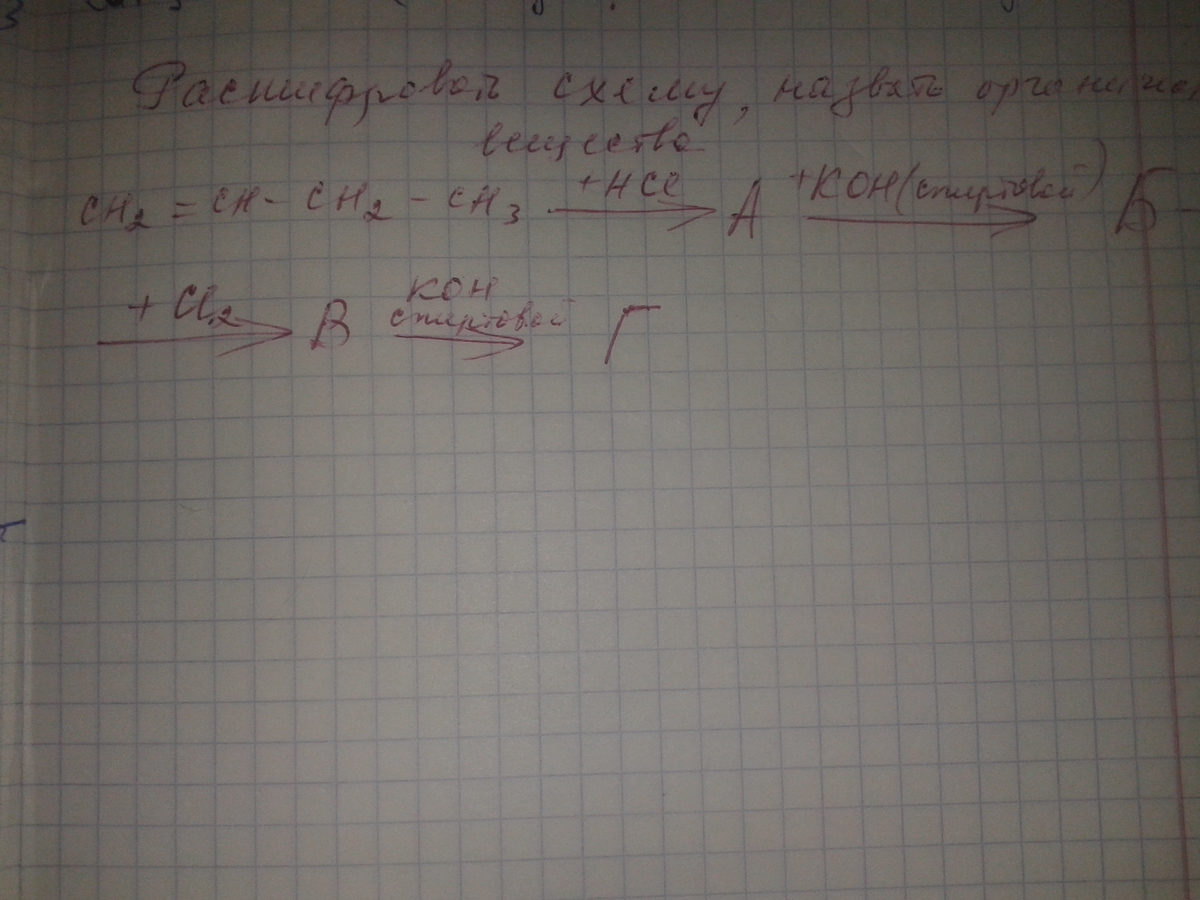 Расшифровать схему, назвать органичес
вещества
CH2 = CH - CH2 - CH3 +HCl А +KOH(спиртовой) Б
+ Cl2 В KOH спиртовой Г